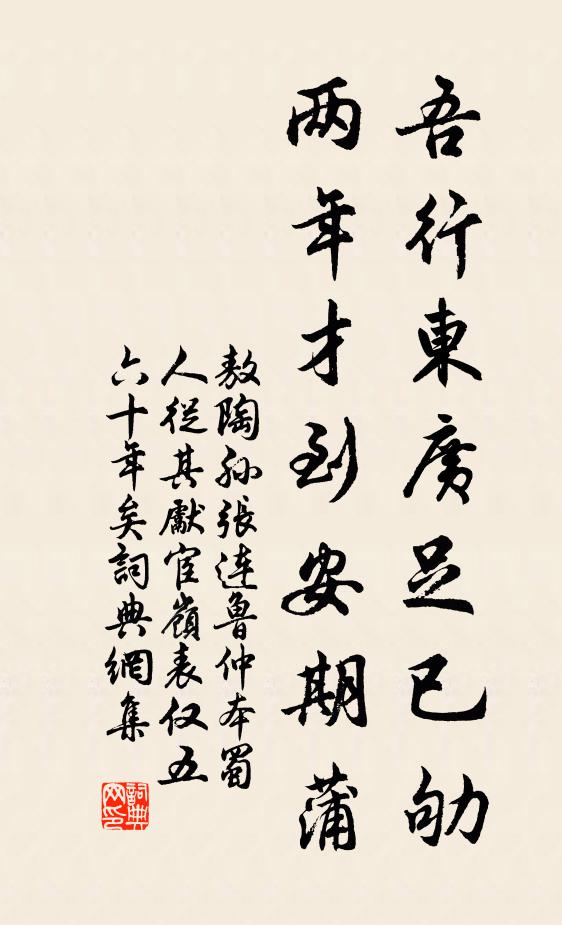 吾行東廣足已劬
两年才到安期蒲
敖陶孙張連魯仲本蜀
人從其獻宦嶺表仅五
六十年矣詞典網集
詞典网印